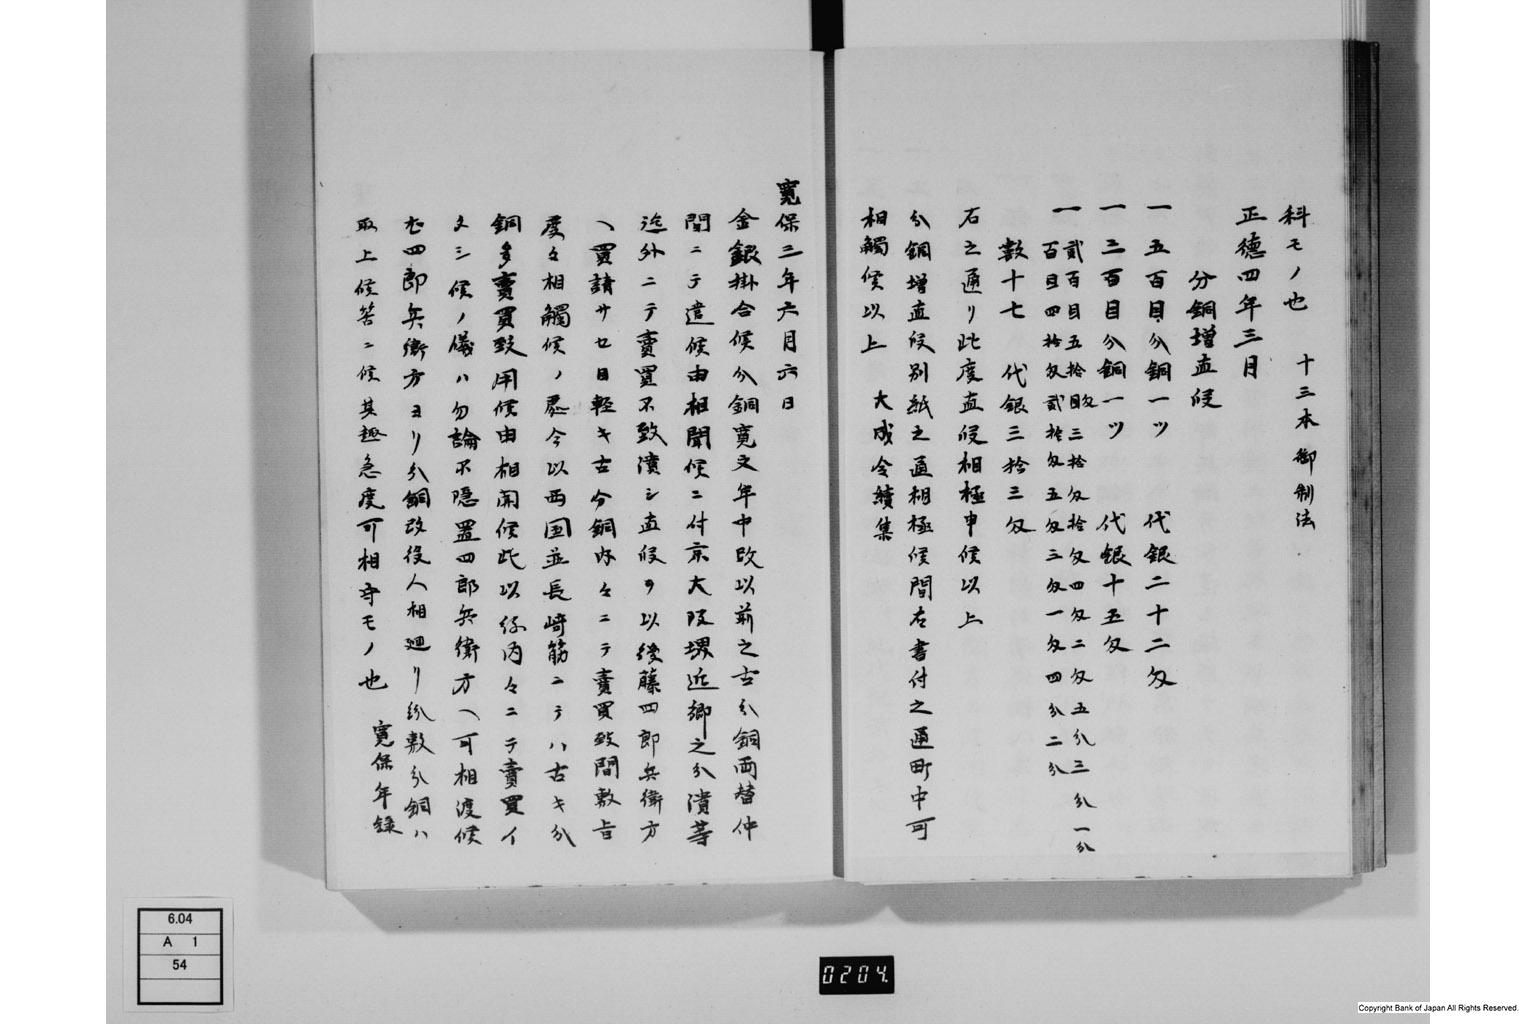 科モノ也　十三本御制法
正徳四年三月
分銅増直段
一　五百目分銅一ツ　代銀二十二匁
一　三百目分銅一ツ　代銀十五匁
一　貳百目五拾目三拾匁拾匁四匁二匁五分三分一分
百目四拾匁貳拾匁五匁三匁一匁四分二分
数十七　代銀三拾三匁
右之通リ此度直段相極申候以上
分銅増直段別紙之通相極候間右書付之通町中可
相觸候以上　大成令續集
寛保三年六月六日
金銀掛合候分銅寛文年中改以前之古分銅両替仲
間ニテ遣候由相聞候ニ付京大阪堺近郷之分潰等
迄外ニテ賣買不致潰シ直段ヲ以後藤四郎兵衛方
ヘ買請サセ目軽キ古分銅内々ニテ賣買致間敷旨
度々相觸候ノ處今以西国並長崎筋ニテハ古キ分
銅多賣買致用候由相聞候此以後内々ニテ賣買イ
タシ候ノ儀ハ勿論不隠置四郎兵衛方ヘ可相渡候
尤四郎兵衛方ヨリ分銅改役人相廻リ紛敷分銅ハ
取上候筈ニ候其趣急度可相守モノ也　寛保年録
6.04
A　1
54
0204.
Copyright Bank of Japan All Rights Reserved.